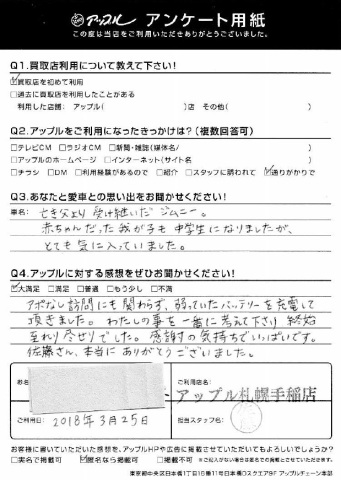 アップル アンケート用紙
この度は当店をご利用いただきありがとうございました。
Q1.買取店利用について教えて下さい!
☑買取店を初めて利用
□過去に買取店を利用したことがある
利用した店舗: アップル( )店 その他( )
Q2.アップルをご利用になったきっかけは?(複数回答可)
□テレビCM □ラジオCM □新聞・雑誌(媒体名/ )
□アップルのホームページ □インターネット(サイト名 )
□チラシ □DM □利用経験があるので □紹介 □スタッフに誘われて ☑通りがかりで
Q3.あなたと愛車との思い出をお聞かせください!
車名: 亡き父より受け継いだジムニー。
赤ちゃんだった我が子も中学生になりましたが、
とても気に入っていました。
Q4.アップルに対する感想をぜひお聞かせください!
☑大満足 □満足 □普通 □もう少し □不満
アポなし訪問にも関わらず、弱っていたバッテリーを充電して
頂きました。わたしの事を一番に考えて下さり 終始
至れり尽せりでした。感謝の気持ちでいっぱいです。
佐藤さん、本当にありがとうございました。
お名
ご利用店名:
アップル札幌手稲店
ご利用日: 2018年3月25日
担当スタッフ名:
お客様に書いていただいた感想を、アップルHPや広告に掲載させていただいてもよろしいでしょうか?
□実名で掲載可 ☑匿名なら掲載可 □掲載不可 ※ご記入がない場合は匿名での掲載とさせていただきます。
東京都中央区日本橋1丁目19番11号日本橋Dスクエア9F アップルチェーン本部